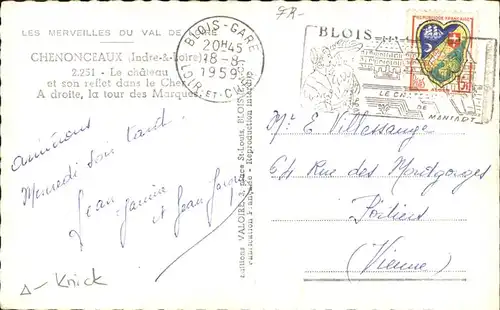 FR-
LES MERVEILLES DU VAL DE
CHENONCEAUX (Indre-&-Loire)
2.251 - Le château
et son reflet dans le Cher
A droite, la tour des Marques
BLOIS-GARE
20H45
18-8
1959
LOIR-ET-CHER
BLOIS
LE CH
DE
RÉPUBLIQUE FRANÇAISE
Editions VALOIRE, place St-Louis, BLOIS
Fabrication Française - Reproduction interdite
arriverons
Mercredi soir tard.
Jean Janine
et Jean Jacques
Δ- Knick
Mr E Villessange
64 Rue des Montgorges
Poitiers
(Vienne)